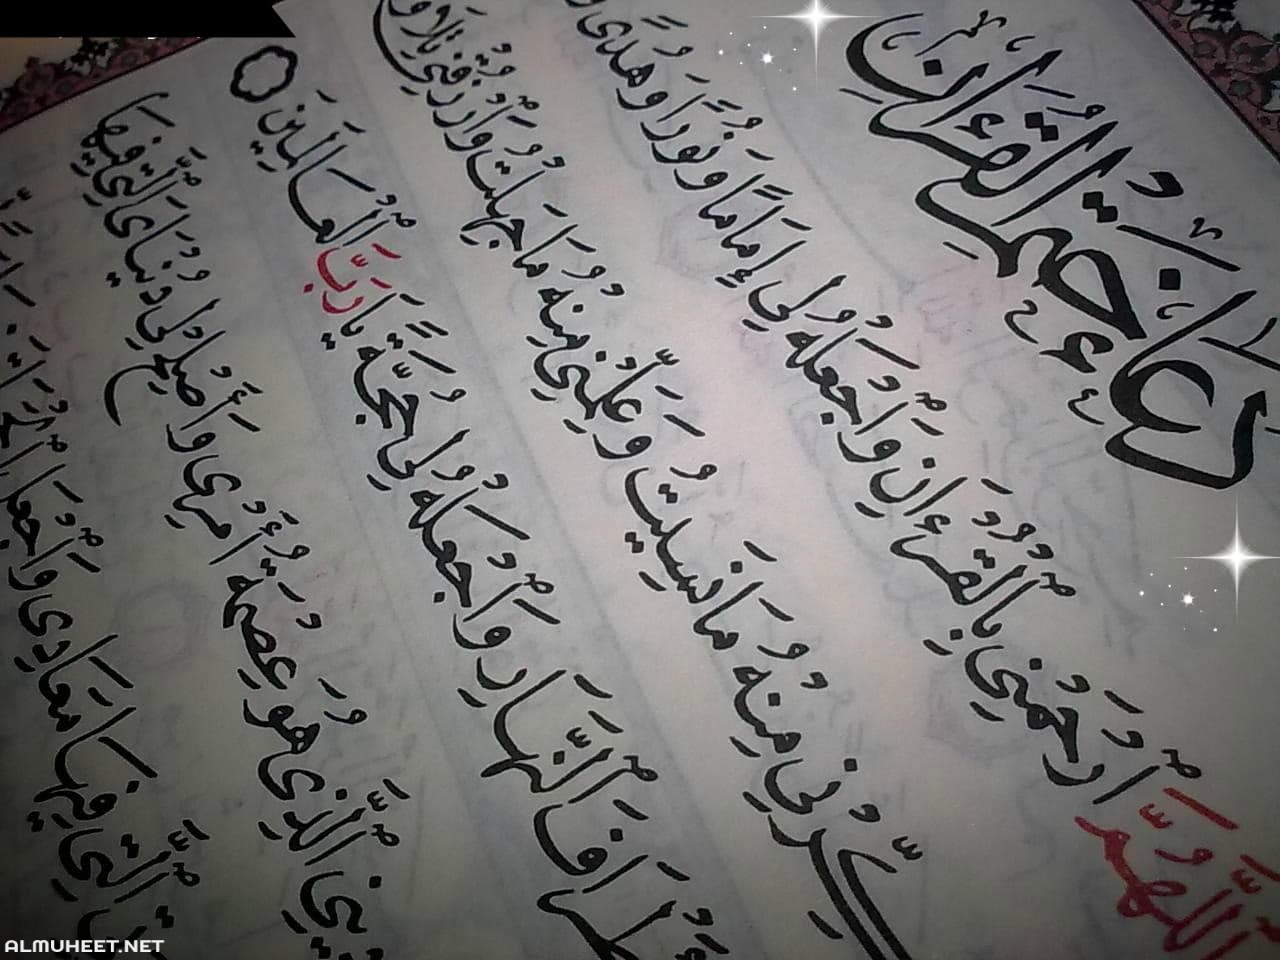 دُعَاءُ خَتْمِ الْقُرْءَانِ
اَللَّهُمَّ ارْحَمْنِي بِالْقُرْءَانِ وَاجْعَلْهُ لِي إِمَامًا وَنُورًا وَهُدًى
كِّرْنِي مِنْهُ مَا نَسِيتُ وَعَلِّمْنِي مِنْهُ مَا جَهِلْتُ وَارْزُقْنِي تِلَاوَ
طْرَافَ النَّهَارِ وَاجْعَلْهُ لِي حُجَّةً يَا رَبَّ الْعَالَمِينَ
دِينِي الَّذِي هُوَ عِصْمَةُ أَمْرِي وَأَصْلِحْ لِي دُنْيَايَ الَّتِي فِيهَا
الَّتِي فِيهَا مَعَادِي وَاجْعَلِ الْحَيَاةَ
ALMUHEET.NET